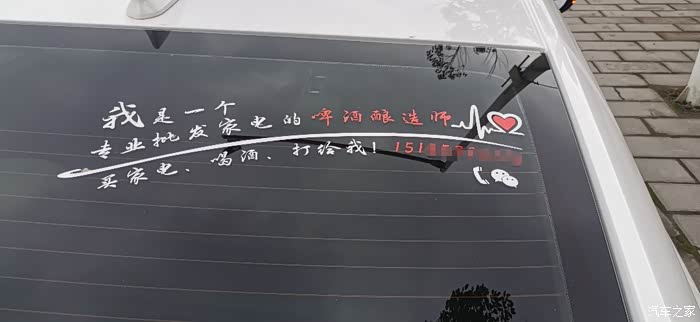 我是一个
专业批发家电的啤酒酿造师
买家电、喝酒、打给我！151
汽车之家